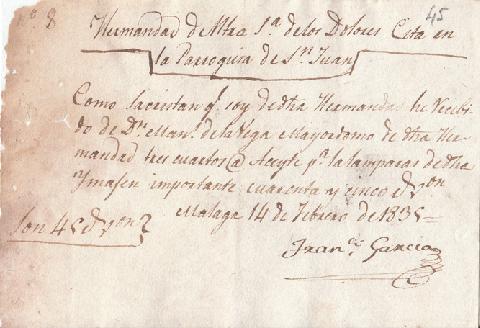 nº 8
45
Hermandad de Ntra Sª de los Dolores Cita en
la Parroquia de Sn Juan
Como Sacristan q. soy de dha Hermandad he recibi-
do de Dn Manl de la Vega Mayordomo de dha Her-
mandad tres cuartos @ Aceyte pa la lamparas de dha
Ymagen importante cuarenta y cinco rs von
Malaga 14 de Febrero de 1835
Son 45 rs von
Franco Garcia